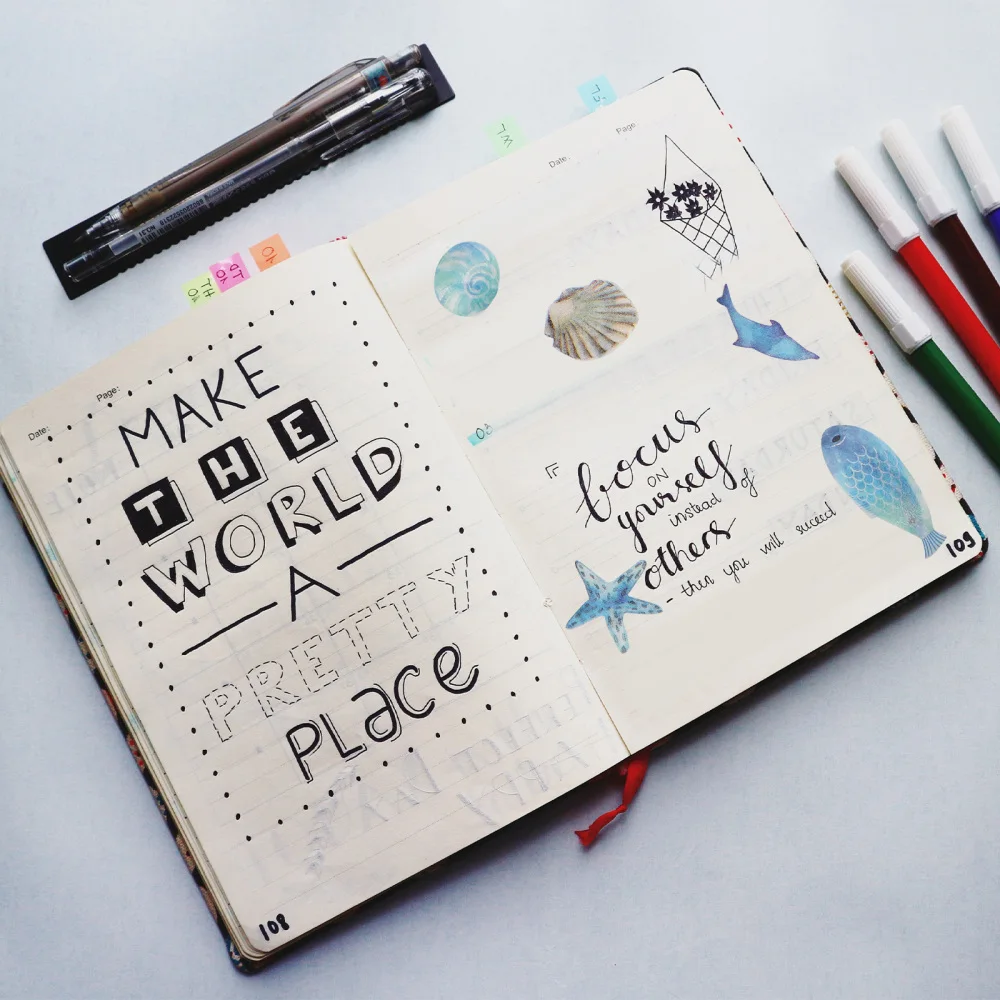 Page:
Date:
MAKE
THE
WORLD
A
PRETTY
PLace
108
Page
Date:
30
focus
ON
yourself
instead of
others
- then you will succeed
109